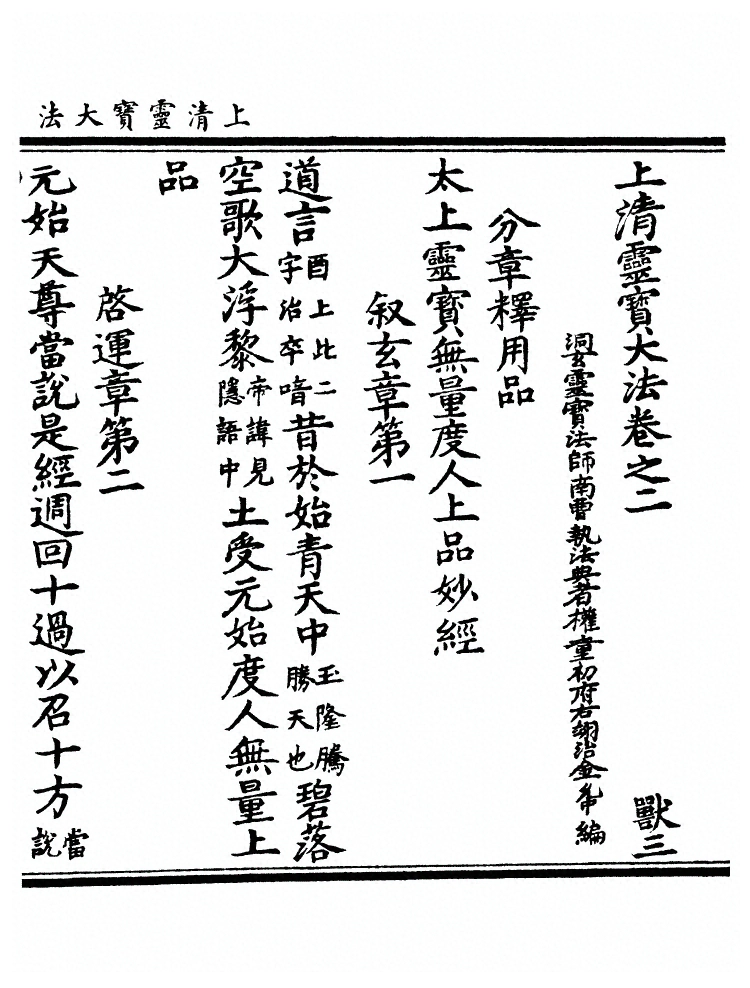 上清靈寶大法
上清靈寶大法卷之二　獸三
洞玄靈寶法師南曹執法典者權童初府右翊治金允中編
分章釋用品
太上靈寶無量度人上品妙經
叙玄章第一
道言酉上此二字治卒喑昔於始青天中玉隆騰勝天也碧落
空歌大浮黎帝諱見隱語中土受元始度人無量上
品
啓運章第二
元始天尊當說是經週回十過以召十方當說